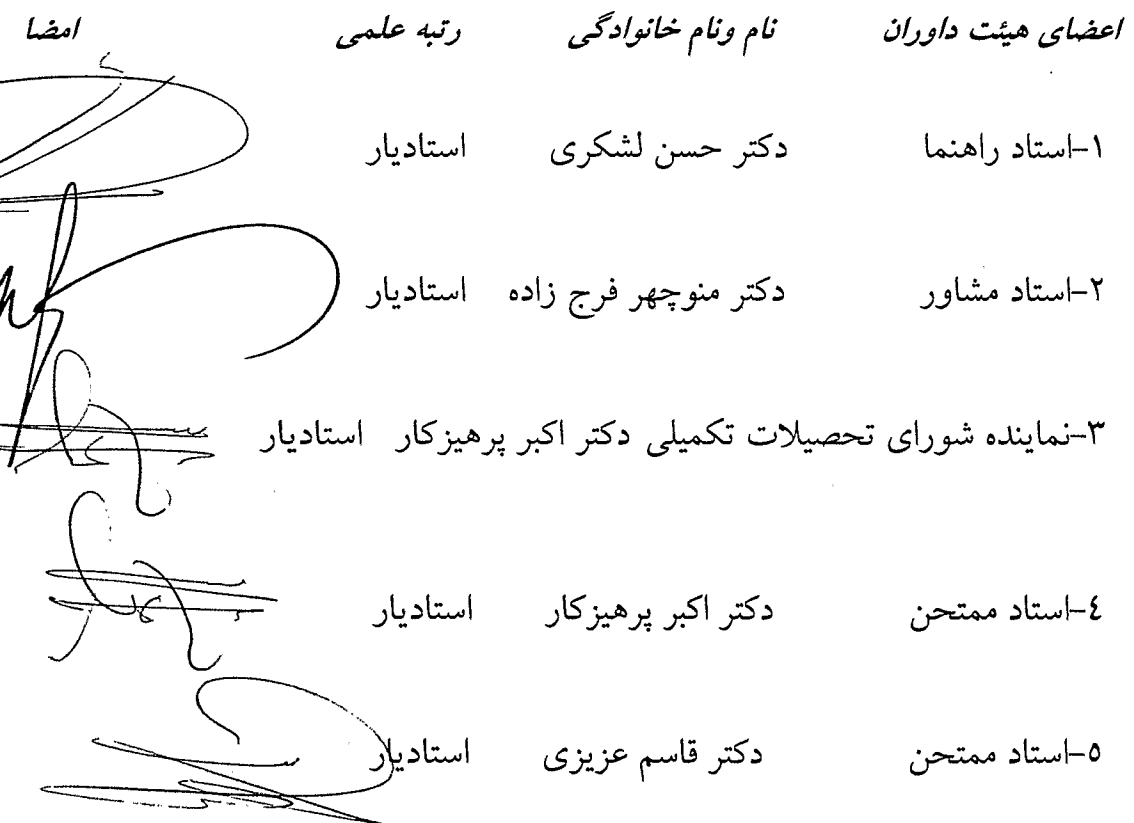 اعضای هیئت داوران نام ونام خانوادگی رتبه علمی امضا
۱-استاد راهنما دکتر حسن لشکری استادیار
۲-استاد مشاور دکتر منوچهر فرج زاده استادیار
۳-نماینده شورای تحصیلات تکمیلی دکتر اکبر پرهیزکار استادیار
٤-استاد ممتحن دکتر اکبر پرهیزکار استادیار
۵-استاد ممتحن دکتر قاسم عزیزی استادیار